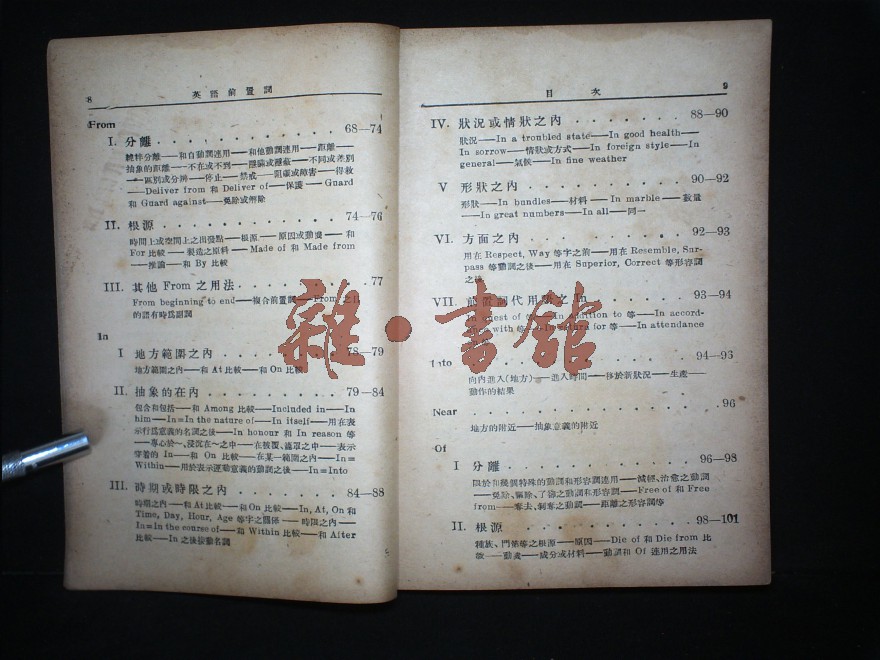 8
英語前置詞
From
I. 分離 68—74
純粹分離——和自動詞連用——和他動詞連用——距離——
抽象的距離——不在或不到——隱瞞或遮蔽——不同或差別
——區別或分辨——停止——禁戒——阻礙或障害——得救
——Deliver from 和 Deliver of——保護——Guard
和 Guard against——免除或解除
II. 根源 74—76
時間上或空間上之出發點——根源——原因或動機——和
For 比較——製造之原料——Made of 和 Made from
——推論——和 By 比較
III. 其他 From 之用法 77
From beginning to end——複合前置詞——From 之目
的語有時爲副詞
In
I 地方範圍之內 78—79
地方範圍之內——和 At 比較——和 On 比較
II. 抽象的在內 79—84
包含和包括——和 Among 比較——Included in——In
him——In=In the nature of——In itself——用在表
示行爲意義的名詞之後——In honour 和 In reason 等
——專心於～、浸沉在～之中——在披覆、籠罩之中——表示
穿着的 In——和 On 比較——在某一範圍之內——In=
Within——用於表示運動意義的動詞之後——In=Into
III. 時期或時限之內 84—88
時期之內——和 At 比較——和 On 比較——In, At, On 和
Time, Day, Hour, Age 等字之關係——時限之內——
In=In the course of——和 Within 比較——和 After
比較——In 之後接動名詞
目次
9
IV. 狀況或情狀之內 88—90
狀況——In a troubled state——In good health——
In sorrow——情狀或方式——In foreign style——In
general——氣候——In fine weather
V 形狀之內 90—92
形狀——In bundles——材料——In marble——數量
——In great numbers——In all——同一
VI. 方面之內 92—93
用在 Respect, Way 等字之前——用在 Resemble, Sur-
pass 等動詞之後——用在 Superior, Correct 等形容詞
之後
VII. 前置詞代用語之 In 93—94
In quest of 等——In addition to 等——In accord-
ance with 等——In return for 等——In attendance
Into 94—96
向內進入(地方)——進入時間——移於新狀況——生產——
動作的結果
Near 96
地方的附近——抽象意義的附近
Of
I 分離 96—98
限於和幾個特殊的動詞和形容詞連用——減輕、治愈之動詞
——免除、驅除、了清之動詞和形容詞——Free of 和 Free
from——奪去、剝奪之動詞——距離之形容詞等
II. 根源 98—101
種族、門第等之根源——原因——Die of 和 Die from 比
較——動機——成分或材料——動詞和 Of 連用之用法
雜·書館